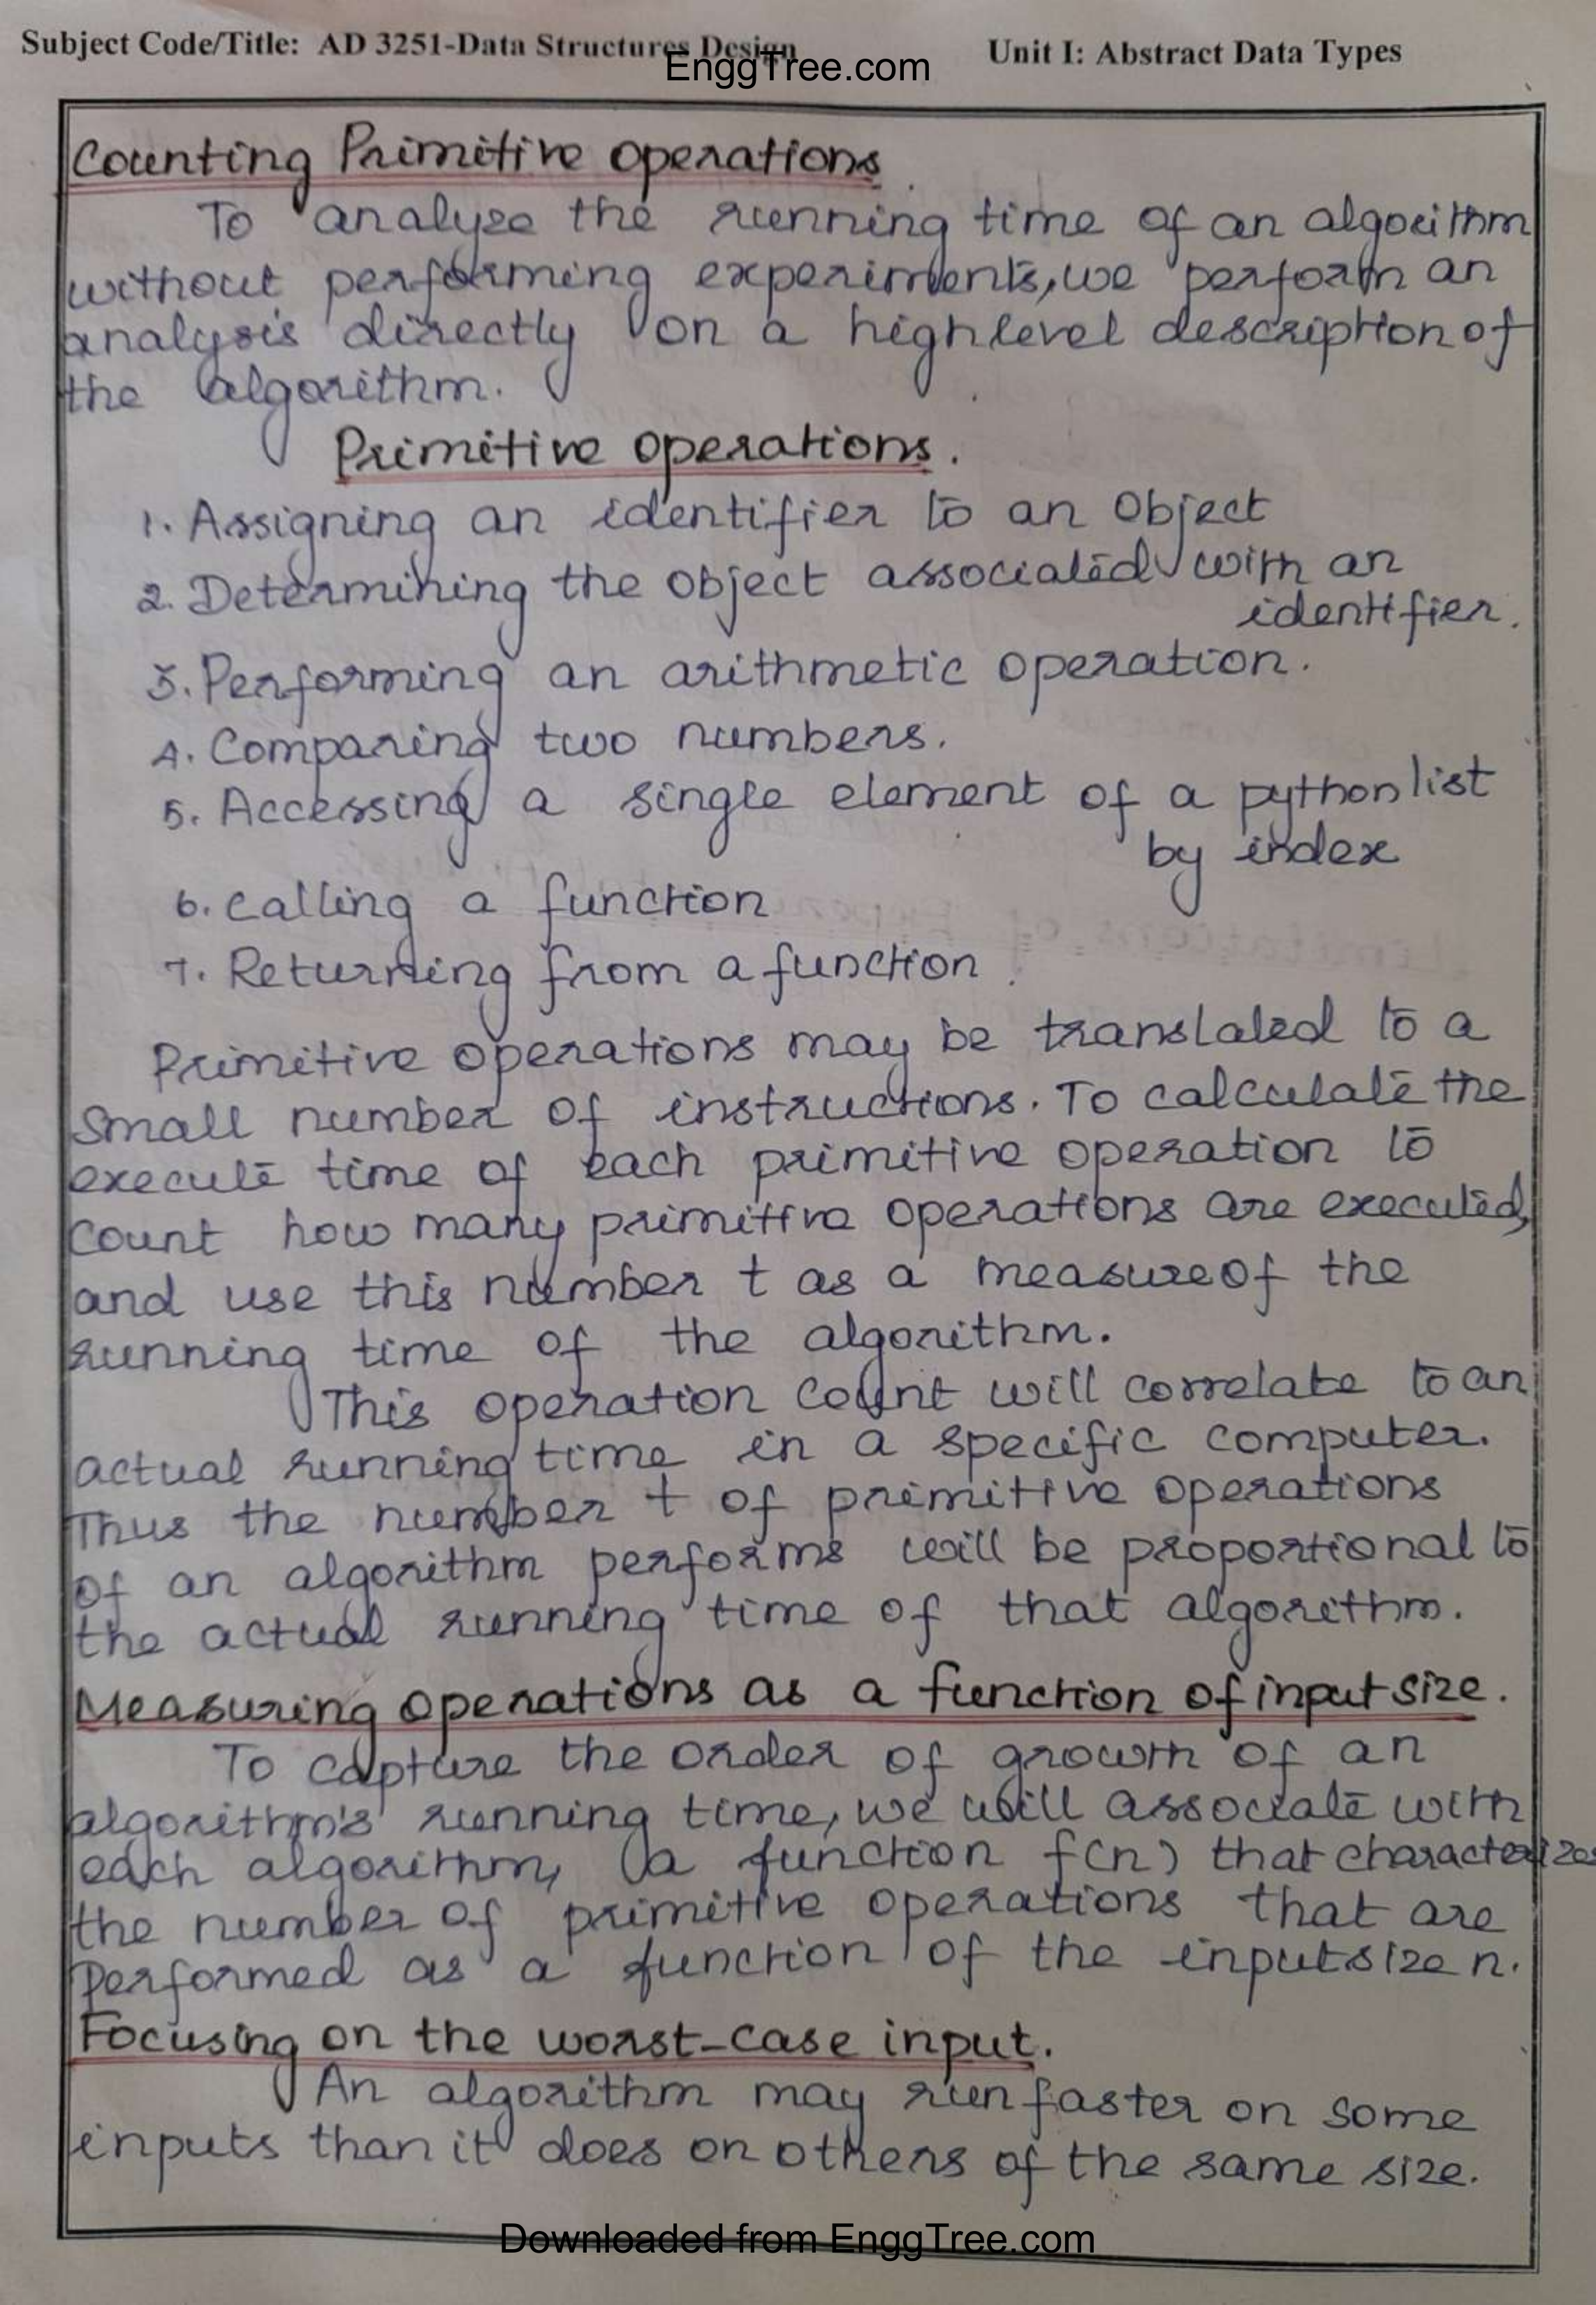 Subject Code/Title: AD 3251-Data Structures Design Unit I: Abstract Data Types
EnggTree.com
Counting Primitive operations
To analyze the running time of an algorithm
without performing experiments, we perform an
analysis directly on a highlevel description of
the algorithm.
Primitive operations.
1. Assigning an identifier to an Object
2. Determining the object associated with an
identifier.
3. Performing an arithmetic operation.
4. Comparing two numbers.
5. Accessing a single element of a python list
by index
6. Calling a function
7. Returning from a function.
Primitive operations may be translated to a
small number of instructions. To calculate the
execute time of each primitive operation to
count how many primitive operations are executed,
and use this number t as a measure of the
running time of the algorithm.
This operation count will correlate to an
actual running time in a specific computer.
Thus the number t of primitive operations
of an algorithm performs will be proportional to
the actual running time of that algorithm.
Measuring operations as a function of input size.
To capture the order of growth of an
algorithm's running time, we will associate with
each algorithm, a function f(n) that characterizes
the number of primitive operations that are
Performed as a function of the input size n.
Focusing on the worst-case input.
An algorithm may run faster on some
inputs than it does on others of the same size.
Downloaded from EnggTree.com